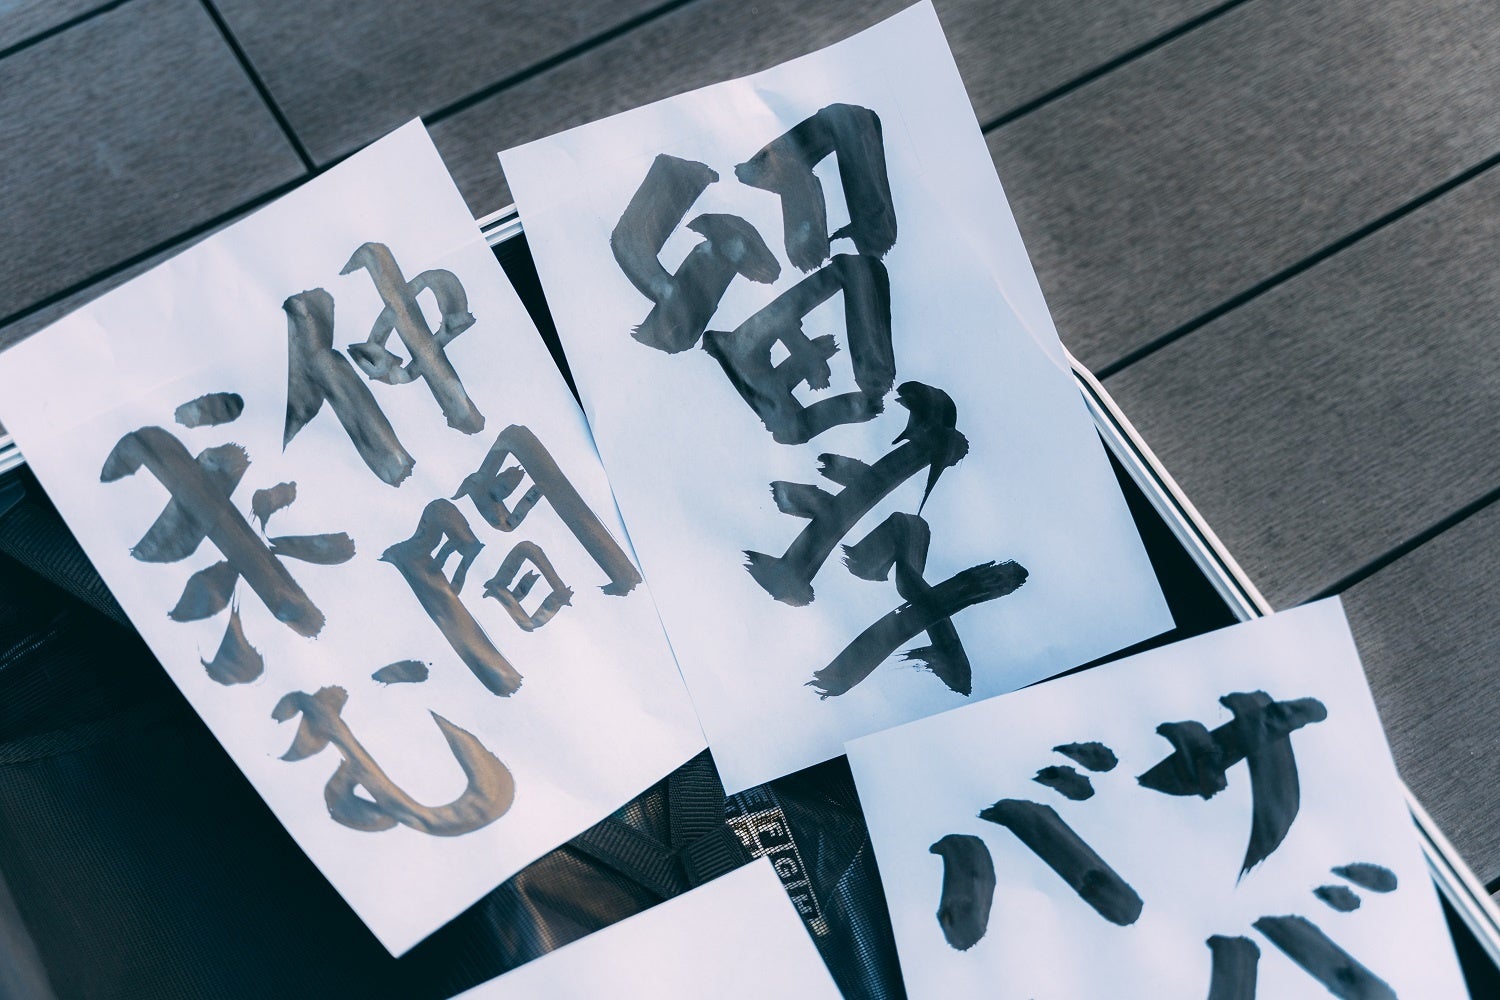 留学
仲間
求む
サバ
バ